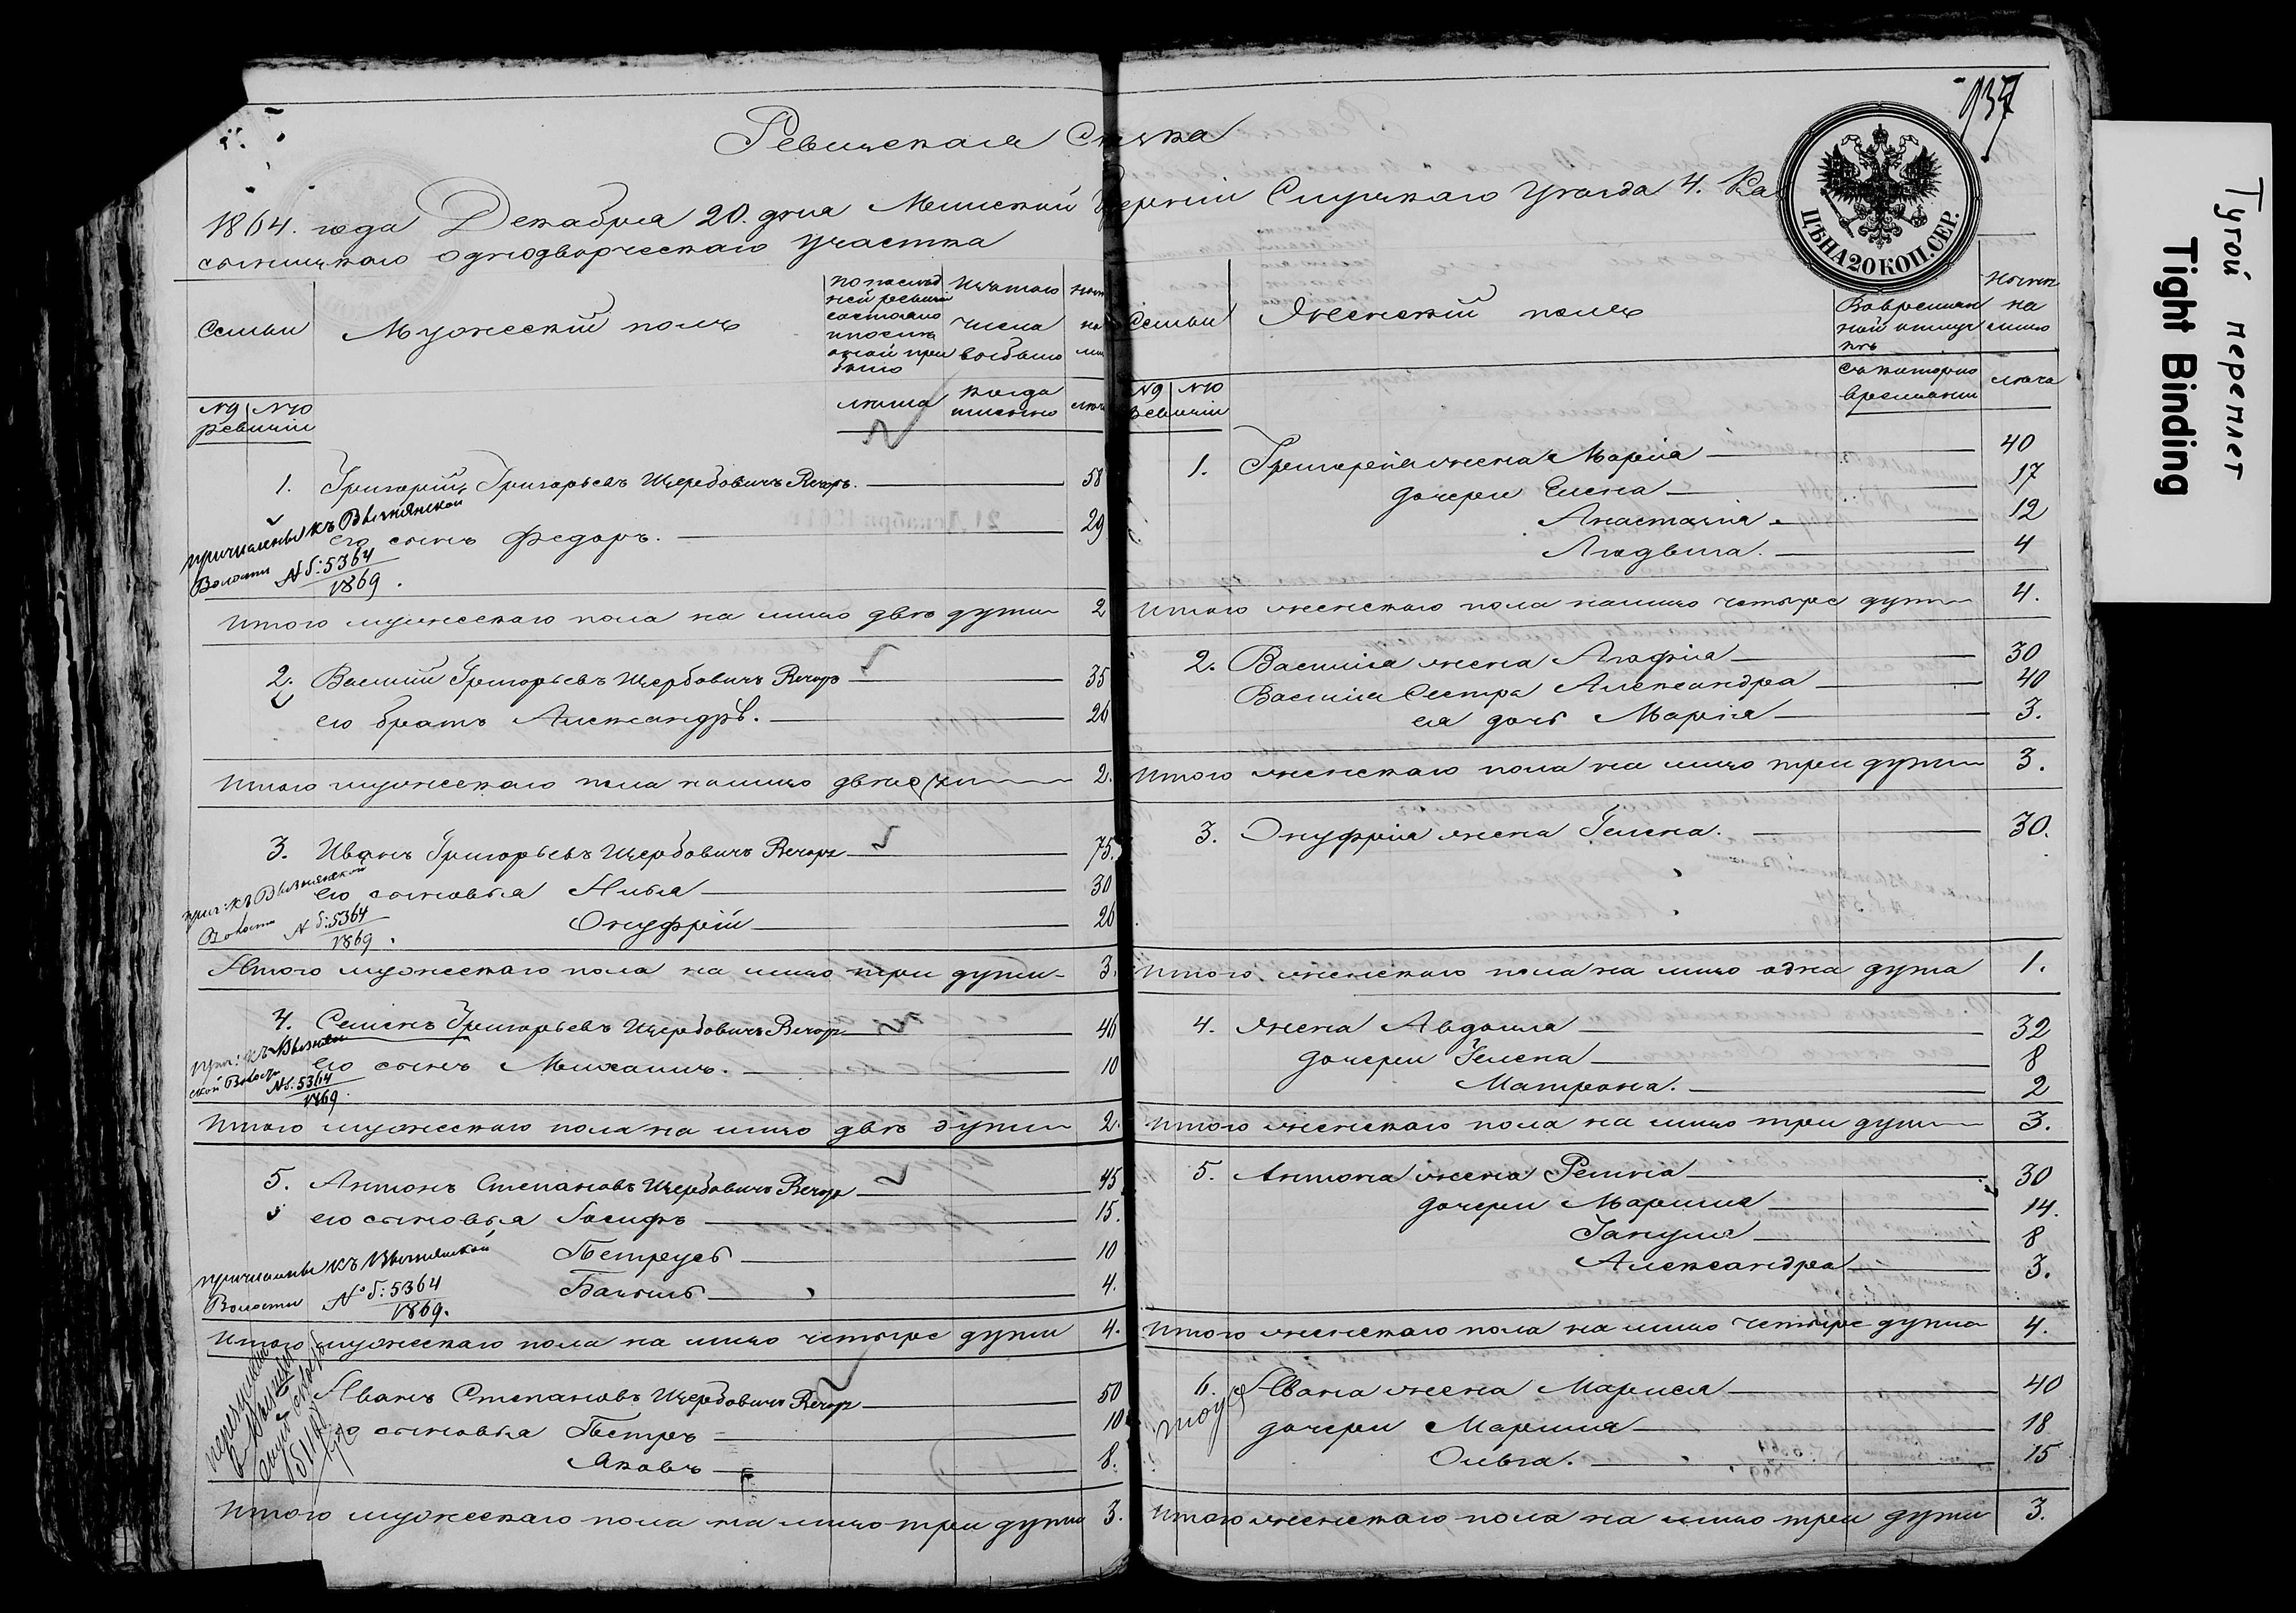 Ревизская Сказка
1864. года Декабря 20. дня Минской Губернии Слуцкаго Уезда 4.
однодворческаго участка
937
ЦѢНА 20 КОП. СЕР.
Семьи
Мужеский полъ
По последней ревизии состояло и после оной прибыло
Изъ того числа выбыло
лета
когда именно
№9 №10
ревизии
1. Григорий Григорьевъ Щербовичъ Вечоръ. 58
его сынъ Федоръ. 29
причислены къ Вызнянской
Волости № б: 5364
1869.
Итого мужескаго пола на лицо две души 2
2. Василий Григорьевъ Щербовичъ Вечоръ 35
его братъ Александръ. 26
Итого мужескаго пола на лицо две души 2.
3. Иванъ Григорьевъ Щербовичъ Вечоръ 75.
его сыновья Илья 30
Онуфрий 26
прич: къ Вызнянской
Волости № б: 5364
1869.
Итого мужескаго пола на лицо три души 3.
4. Семенъ Григорьевъ Щербовичъ Вечоръ 46
его сынъ Михаилъ. 10
прич: къ Вызнянской Волости
№ б: 5364
1869.
Итого мужескаго пола на лицо две души 2.
5. Антонъ Степановъ Щербовичъ Вечоръ 45
его сыновья Иосифъ 15.
Петрусь 10
4.
причислены къ Вызнянской
Волости № б: 5364
1869.
Итого мужескаго пола на лицо четыре души 4.
Иванъ Степановъ Щербовичъ Вечоръ 50
его сыновья Петръ 10
Яковъ 8.
Итого мужескаго пола на лицо три души 3.
Семьи
Женский полъ
Во временной отлучке
Ныне на лицо
Съ котораго времени
лета
№9 №10
Ревизии
1. Григорея жена Мария 40
дочери Елена 17
Анастасия 12
Людвига. 4
Итого женскаго пола на лицо четыре души 4.
2. Василия жена Агафия 30
Василия Сестра Александра 40
ея дочь Мария 3.
Итого женскаго пола на лицо три души 3.
3. Онуфрия жена Гелена. 30.
Итого женскаго пола на лицо одна душа 1.
4. жена Авдотия 32
дочери Гелена 8
Матрона. 2
Итого женскаго пола на лицо три души 3.
5. Антона жена Регина 30
дочери Марина 14.
Гануля 8
Александра 3.
Итого женскаго пола на лицо четыре души 4.
6. Ивана жена Марися 40
дочери Марина 18
Ольга. 15
Итого женскаго пола на лицо три души 3.
Тугой переплет
Tight Binding